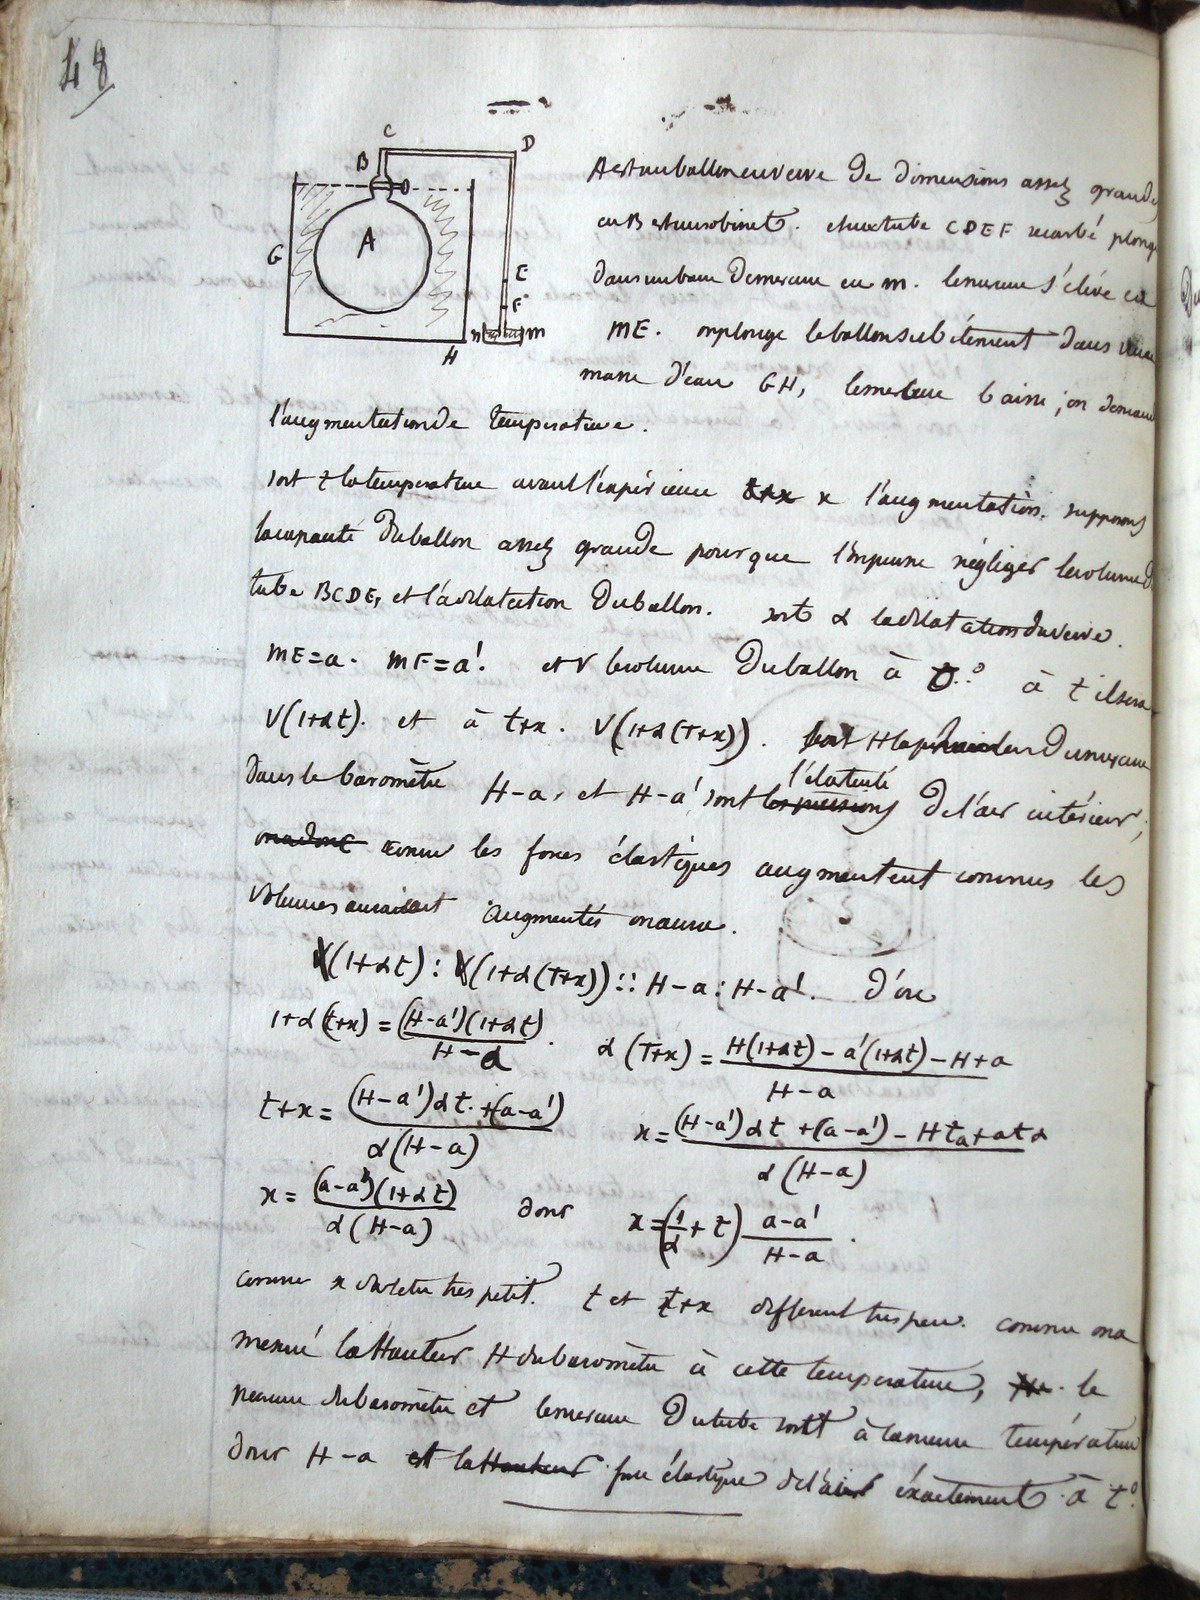 48
C
B
D
A
G
E
F
n m
H
A est un ballon en verre de dimensions assez grandes
en B est un robinet. et un tube CDEF recourbé plonge
dans un bain de mercure en m. le mercure s'élève en
ME. on plonge le ballon subitement dans une
masse d'eau GH, le mercure baisse; on demande
l'augmentation de température.
soit t la température avant l'expérience t+x x l'augmentation. supposons
la capacité du ballon assez grande pour que l'on puisse négliger le volume du
tube BCDE, et la dilatation du ballon. soit α la dilatation du verre.
ME=a. MF=a'. et V le volume du ballon à 0.° à t il sera
V(1+αt). et à t+x. V(1+α(t+x)). soit H la hauteur du mercure
dans le baromètre H-a, et H-a' sont les pressions l'élasticité de l'air intérieur;
on a donc comme les forces élastiques augmentent comme les
volumes auraient augmentés on aura.
V(1+αt) : V(1+α(t+x)) :: H-a : H-a'. d'où
1+α(t+x) = (H-a')(1+αt) / H-a . α(t+x) = H(1+αt) - a'(1+αt) - H+a / H-a
t+x = (H-a')αt + (a-a') / α(H-a) x = (H-a')αt + (a-a') - Htα + atα / α(H-a)
x = (a-a')(1+αt) / α(H-a) donc x = (1/α + t) a-a' / H-a .
comme x doit être très petit. t et t+x diffèrent très peu. comme on a
mesuré la Hauteur H du baromètre à cette température, le
mercure du baromètre et le mercure du tube sont à la même température
donc H-a est la Hauteur force élastique de l'air exactement à t°.